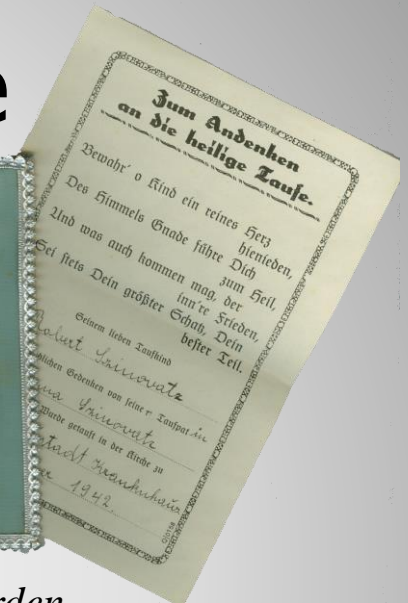 e
Zum Andenken
an die heilige Taufe.
Bewahr' o Kind ein reines Herz
hienieden,
Des Himmels Gnade führe Dich
zum Heil,
Und was auch kommen mag, der
inn're Frieden,
Sei stets Dein größter Schatz, Dein
bester Teil.
Seinem lieben Taufkind
Robert Szinovatz
lichen Gedenken von seiner Taufpat in
Szinovatz
Wurde getauft in der Kirche zu
stadt Krankenhaus
1942.
rden